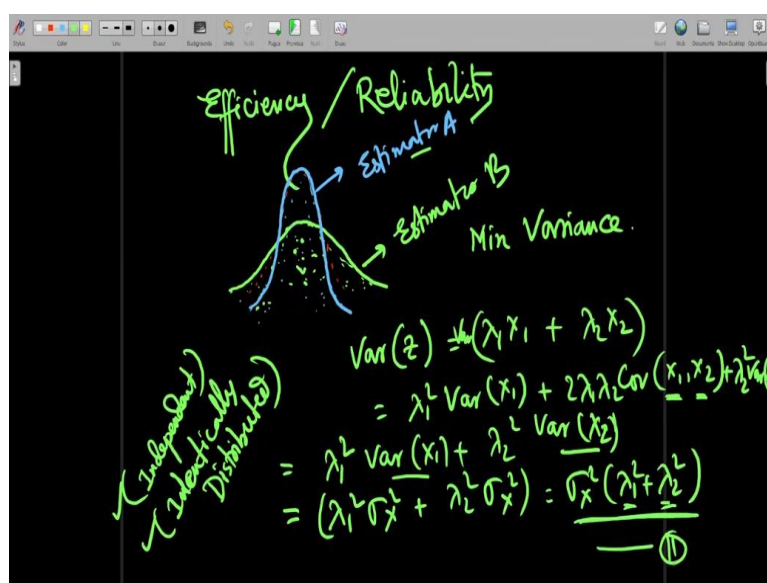 Stylus Color Line Eraser Backgrounds Undo Redo Pages Previous Next Erase Board Web Documents Show Desktop
Efficiency / Reliability
Estimator A
Estimator B
Min Variance.
Var(z) = Var(λ₁x₁ + λ₂x₂)
= λ₁² Var(x₁) + 2λ₁λ₂ Cov(x₁, x₂) + λ₂² Var(
= λ₁² Var(x₁) + λ₂² Var(x₂)
= (λ₁² σₓ² + λ₂² σₓ²) = σₓ² (λ₁² + λ₂²)
— II
(Independent)
(Identically
Distributed)